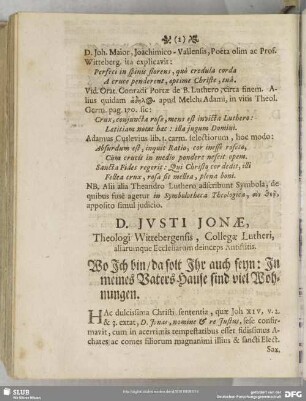 (2)
D. Joh. Maior, Joachimico-Vallensis, Poeta olim ac Prof.
Witteberg. ita explicavit:
Perfeci in spinis florens, quò credula corda
A cruce penderent, optime Christe, tuâ.
Vid. Orat Conradi Portæ de B. Luthero, circa finem. A-
lius quidam apud Melch. Adami, in vitis Theol.
Germ. pag. 170. sic:
Crux, conjuncta rosæ, mens est invicta Lutheri:
Latitiam notat hæc: illa jugum Domini.
Adamus lib. 1. carm. selectiorum, hoc modo:
Absurdum est, inquit Ratio, cor inesse roseto,
Cum crucis in medio pondere nescit opem.
Sancta Fides regerit: Qui Christo cor dedit, illi
Festa crux, rosa sit mellea, plena boni.
NB. Alii alia Theandro Luthero adscribunt Symbola, de
quibus fusè agetur in Symbolotheca Theologica,
apposito simul judicio.
D. JVSTI JONÆ,
Theologi Wittebergensis, Collegæ Lutheri,
aliarumque Ecclesiarum deinceps Antistitis.
Wo Ich bin/ da solt Ihr auch seyn: In
meines Vaters Hause sind viel Woh-
nungen.
HAc dulcissima Christi sententia, quæ Joh XIV, v. 2.
& 3. extat, D. Jonas, nomine & re Justus, sese confir-
mavit, cum in acerrimis tempestatibus esset fidissimus A-
chates ac comes filiorum magnanimi illius & sancti Elect.
Sax.
SLUB